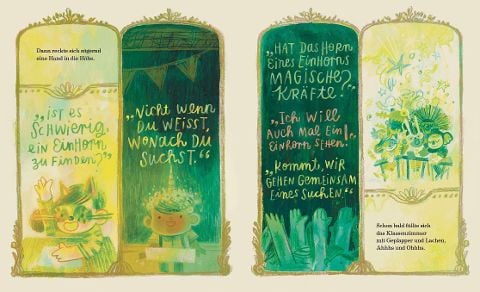 Dann reckte sich zögernd
eine Hand in die Höhe.
„IST ES
SCHWIERIG,
EIN EINHORN
ZU FINDEN?“
„NICHT WENN
DU WEISST,
WONACH DU
SUCHST.“
„HAT DAS HORN
EINES EINHORNS
MAGISCHE
KRÄFTE?“
„ICH WILL
AUCH MAL EIN
EINHORN SEHEN!“
„KOMMT, WIR
GEHEN GEMEINSAM
EINES SUCHEN.“
Schon bald füllte sich
das Klassenzimmer
mit Geplapper und Lachen,
Ahhhs und Ohhhs.